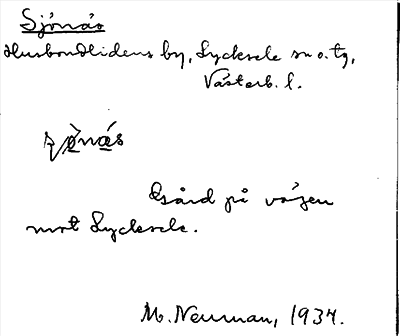 Sjönäs
Husbondlidens by, Lycksele sn o. tg,
Västerb. l.
Gård på vägen
mot Lycksele.
M. Neuman, 1934.